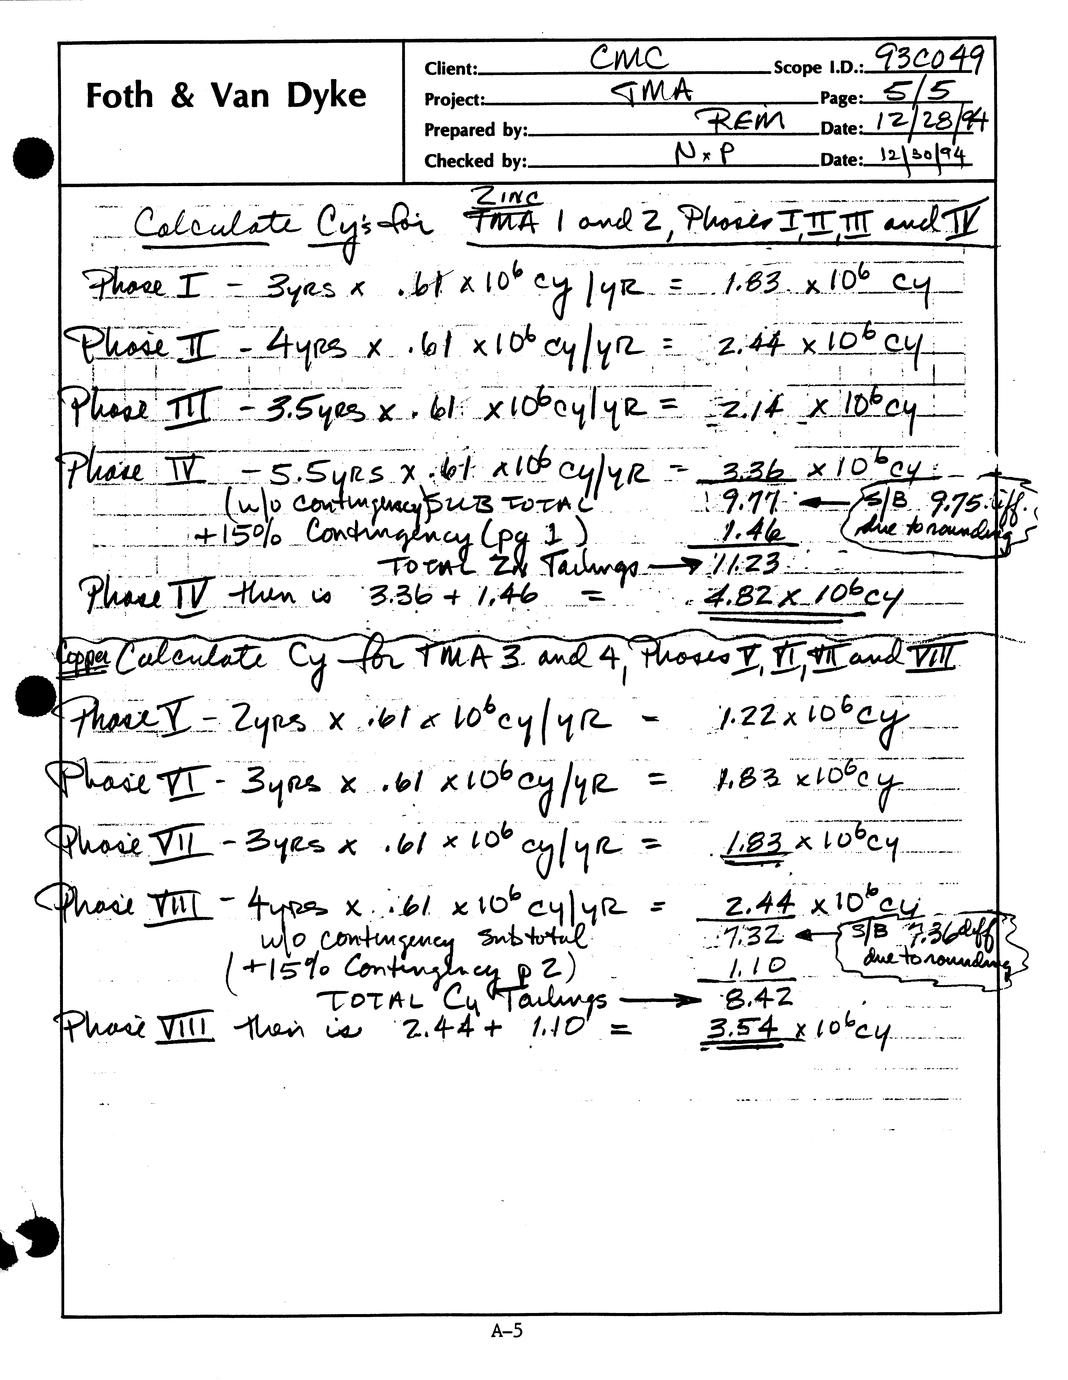 Foth & Van Dyke
Client: CMC Scope I.D.: 93C049
Project: TMA Page: 5/5
Prepared by: REM Date: 12/28/94
Checked by: NxP Date: 12/30/94
ZINC
Calculate Cy's for TMA 1 and 2, Phases I, II, III and IV
Phase I - 3yrs x .61 x 10⁶ cy/yR = 1.83 x 10⁶ cy
Phase II - 4yrs x .61 x 10⁶ cy/yR = 2.44 x 10⁶ cy
Phase III - 3.5yrs x .61 x 10⁶ cy/yR = 2.14 x 10⁶ cy
Phase IV - 5.5yrs x .61 x 10⁶ cy/yR = 3.36 x 10⁶ cy
(w/o contingency) SUB TOTAL 9.77 ← S/B 9.75 diff.
due to rounding
+15% Contingency (pg 1) 1.46
TOTAL Zn Tailings → 11.23
Phase IV then is 3.36 + 1.46 = 4.82 x 10⁶ cy
Copper Calculate Cy for TMA 3 and 4, Phases V, VI, VII and VIII
Phase V - 2yrs x .61 x 10⁶ cy/yR = 1.22 x 10⁶ cy
Phase VI - 3yrs x .61 x 10⁶ cy/yR = 1.83 x 10⁶ cy
Phase VII - 3yrs x .61 x 10⁶ cy/yR = 1.83 x 10⁶ cy
Phase VIII - 4yrs x .61 x 10⁶ cy/yR = 2.44 x 10⁶ cy
w/o contingency subtotal 7.32 ← S/B 7.36 diff
due to rounding
(+15% Contingency p 2) 1.10
TOTAL Cu Tailings → 8.42
Phase VIII then is 2.44 + 1.10 = 3.54 x 10⁶ cy
A-5